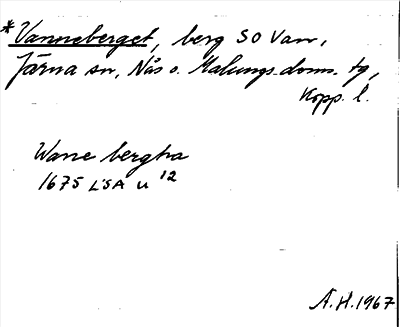 *Vanneberget, berg SO Van,
Järna sn, Nås o. Malungs doms. tg,
Kopp. l.
Wane bergha
1675 LSA U 12
Å.H. 1967